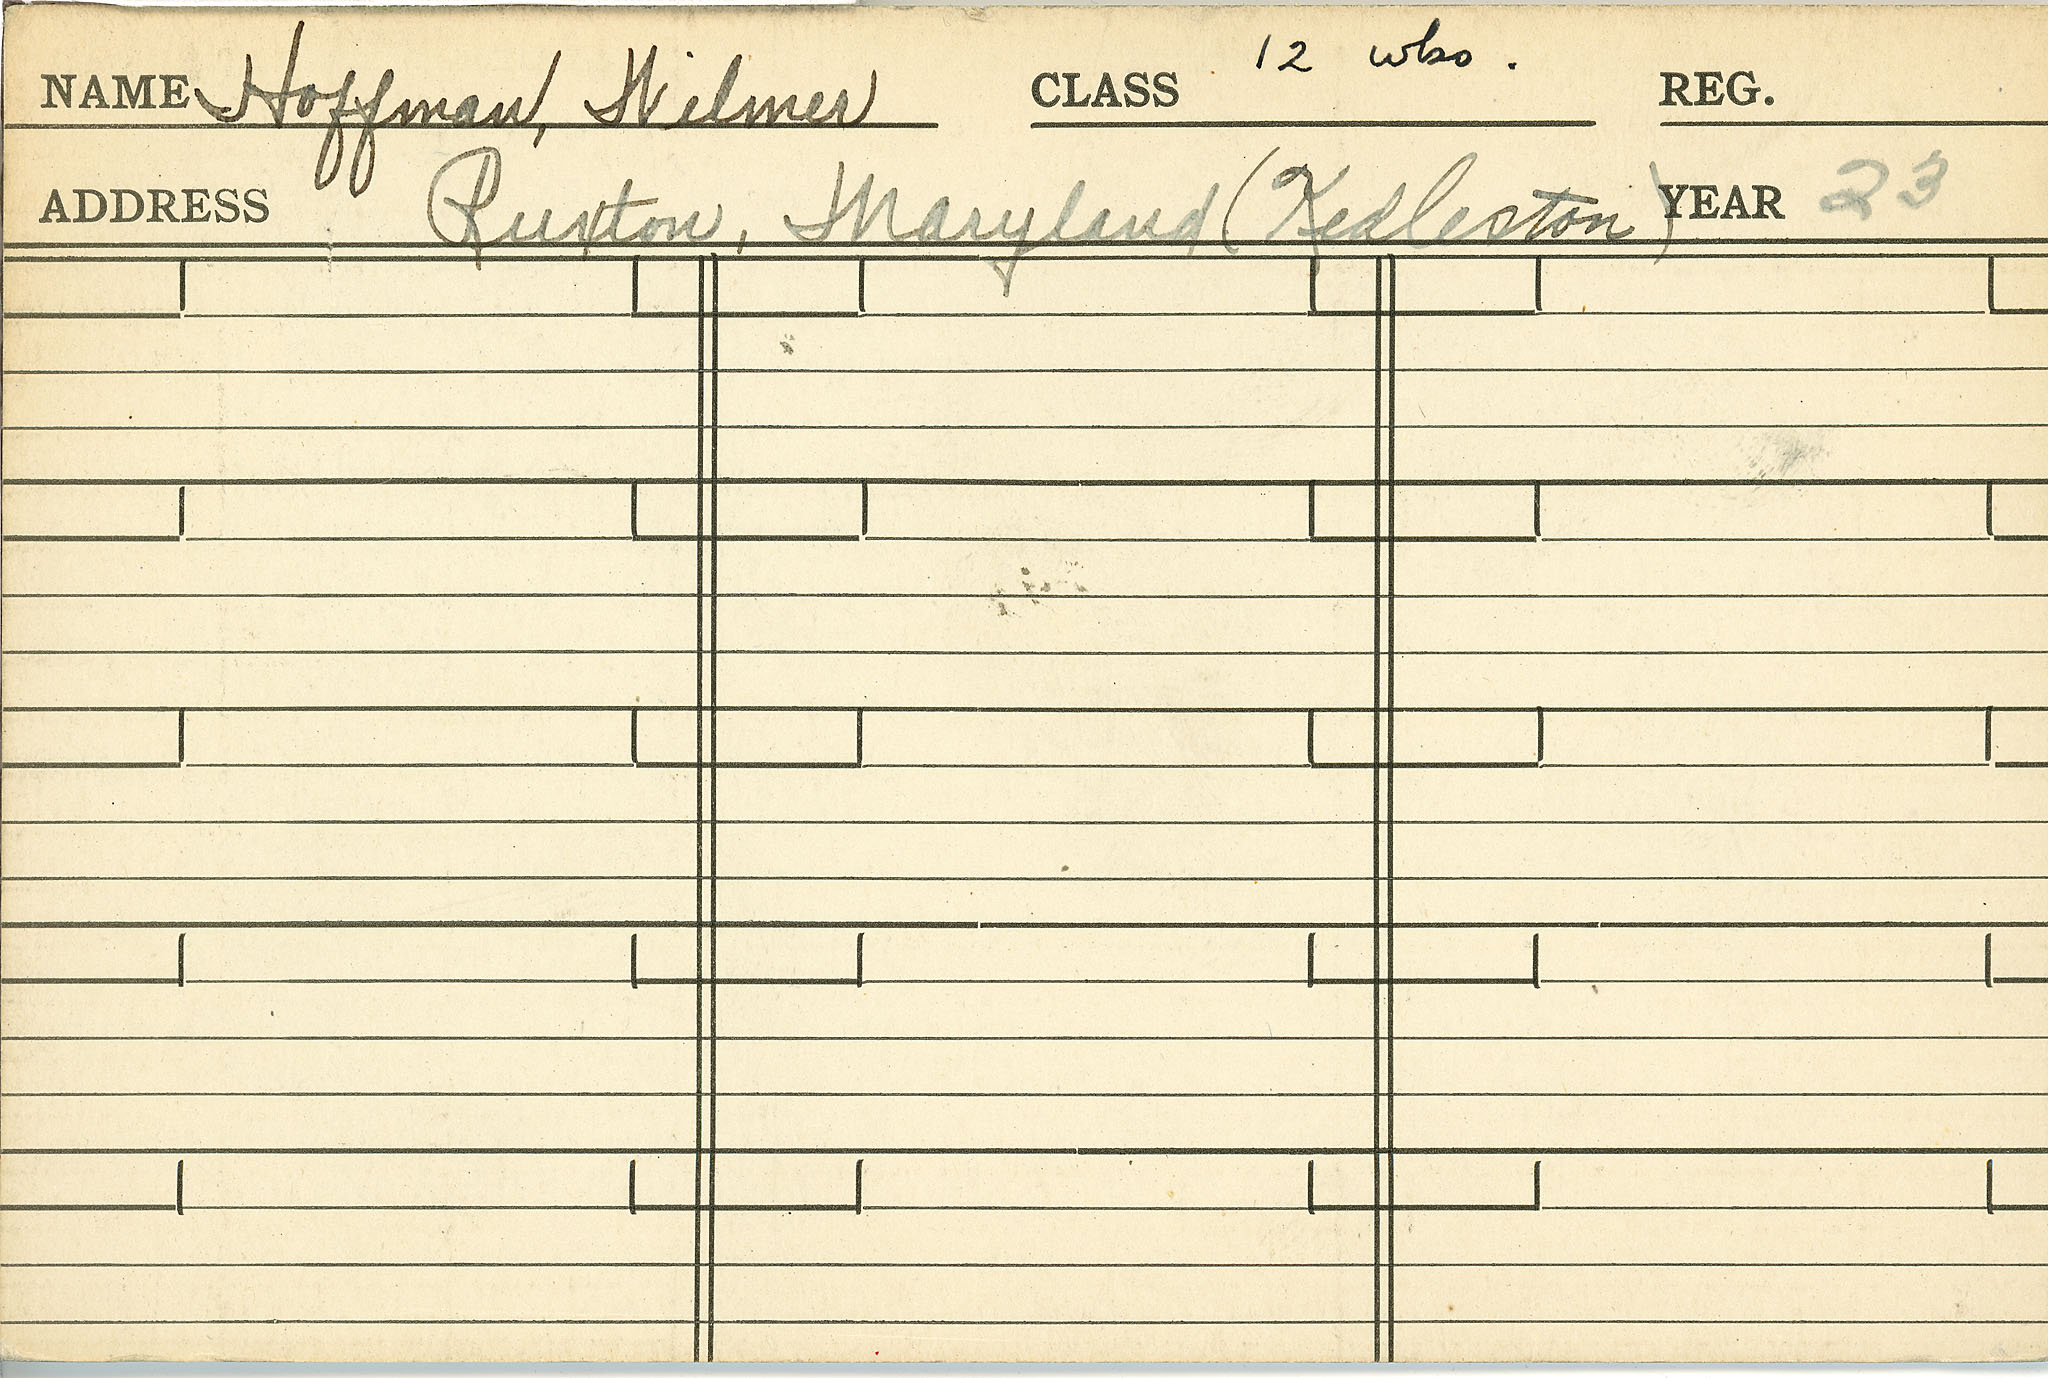 NAME Hoffman, Wilmer CLASS 12 wks. REG.
ADDRESS Ruxton, Maryland (Kedleston) YEAR 23